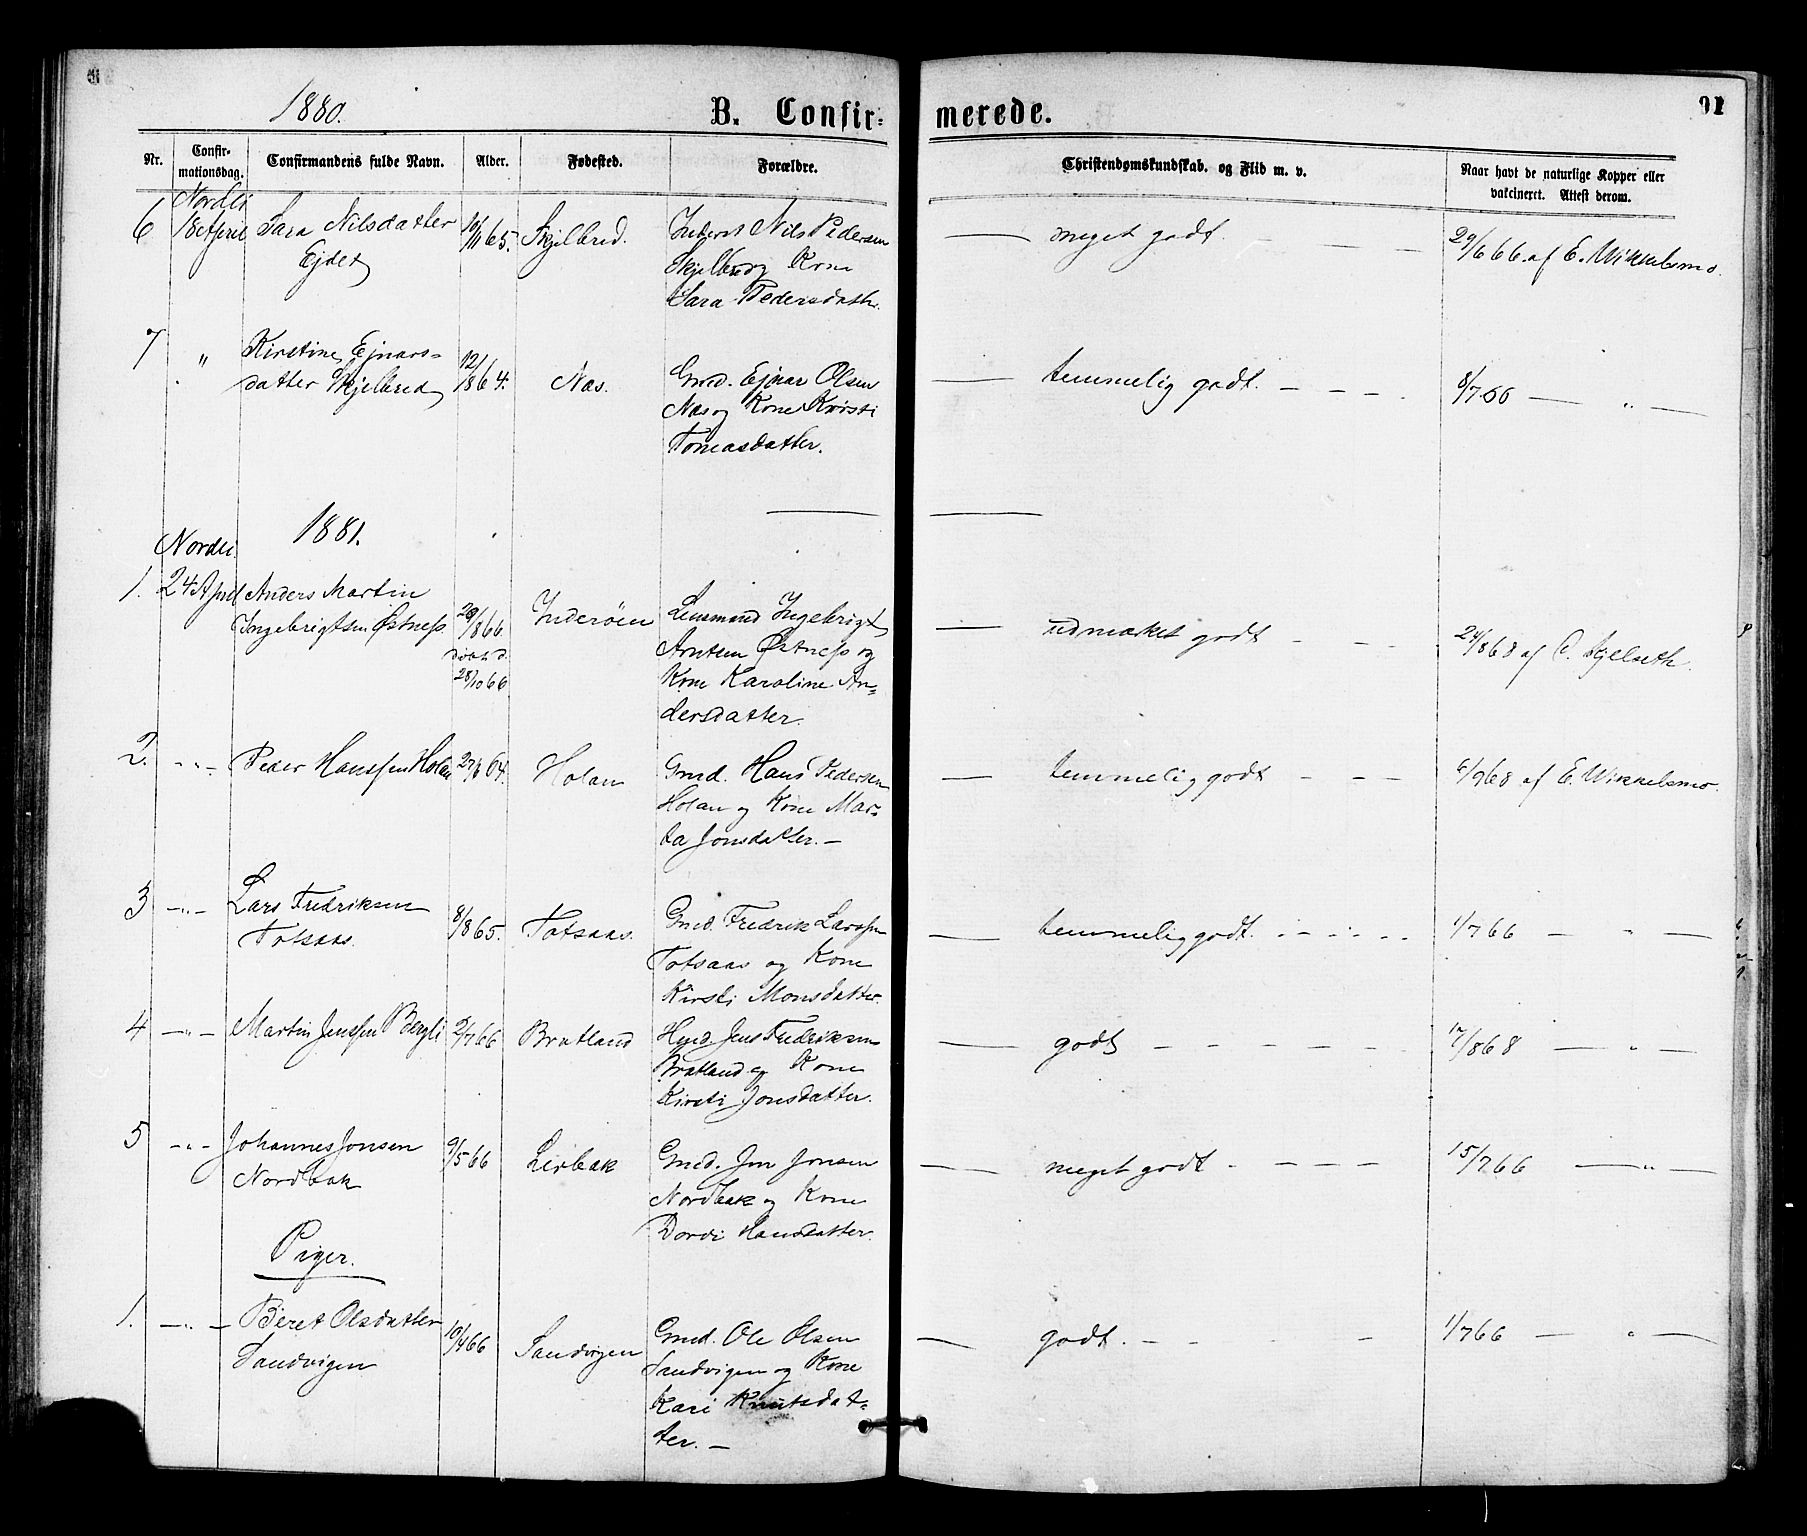 1880.
B. Confir-
merede.
91
Nr.
Confir-
mationsdag.
Confirmandens fulde Navn.
Alder.
Fødested.
Forældre.
Christendomskundskab. og Flid m. v.
Naar havt de naturlige Kopper eller
vakcineret. Attest derom.
Nordli
6 18 April Sara Nilsdatter 10/11 65. Skjelbred. Inderst Nils Pedersen — meget godt. — — — 29/6 66. af E. Mikkelsmo.
Ejdet Skjelbred og Kone
Sara Pedersdatter.
7 " Kirstine Ejnars-
datter Skjelbred 12/1864. Næs. Gmd. Ejnar Olsen — temmelig godt. — — — 8/7 66 — " —
Næs og Kone Kirsti
Tomasdatter.
1881.
Nordli
1. 24 April Anders Martin
Ingebrigtsen Østness. 29/8 66. Inderøen Lensmand Ingebrigt — udmærket godt — — — 24/8 68 af O. Skjelseth.
døbt d. Arntsen Østness og
28/10 66 Kone Karoline An-
dersdatter.
2. - " - Peder Hanssen Holan 27/6 64. Holan Gmd. Hans Pedersen — temmelig godt — — — 6/9 68 af E. Mikkelsmo.
Holan og Kone Mar-
ta Jonsdatter. —
3 - " - Lars Fredriksen
Totsaas. 8/8 65. Totsaas. Gmd. Fredrik Larssen — temmelig godt. - - - - - 1/7 66 — " —
Totsaas og Kone
Kirsti Monsdatter.
4 - " - Martin Jenssen Bergli 2/7 66 Bratland Hmd. Jens Fredriksen — godt — — — — — 17/8 68 — " —
Bratland og Kone
Kirsti Jonsdatter.
5 - " - Johannes Jonsen
Nordbak 9/5 66 Lerbak Gmd. Jon Jonsen — meget godt — — — — 15/7 66 — " —
Nordbak og Kone
Dordi Hansdatter.
Piger.
1. - " - Beret Olsdatter
Sandvigen 10/4 66 Sandvigen Gmd. Ole Olsen — godt. — — — — 1/7 66 — " —
Sandvigen og Kone
Kari Knutsdat-
ter. —